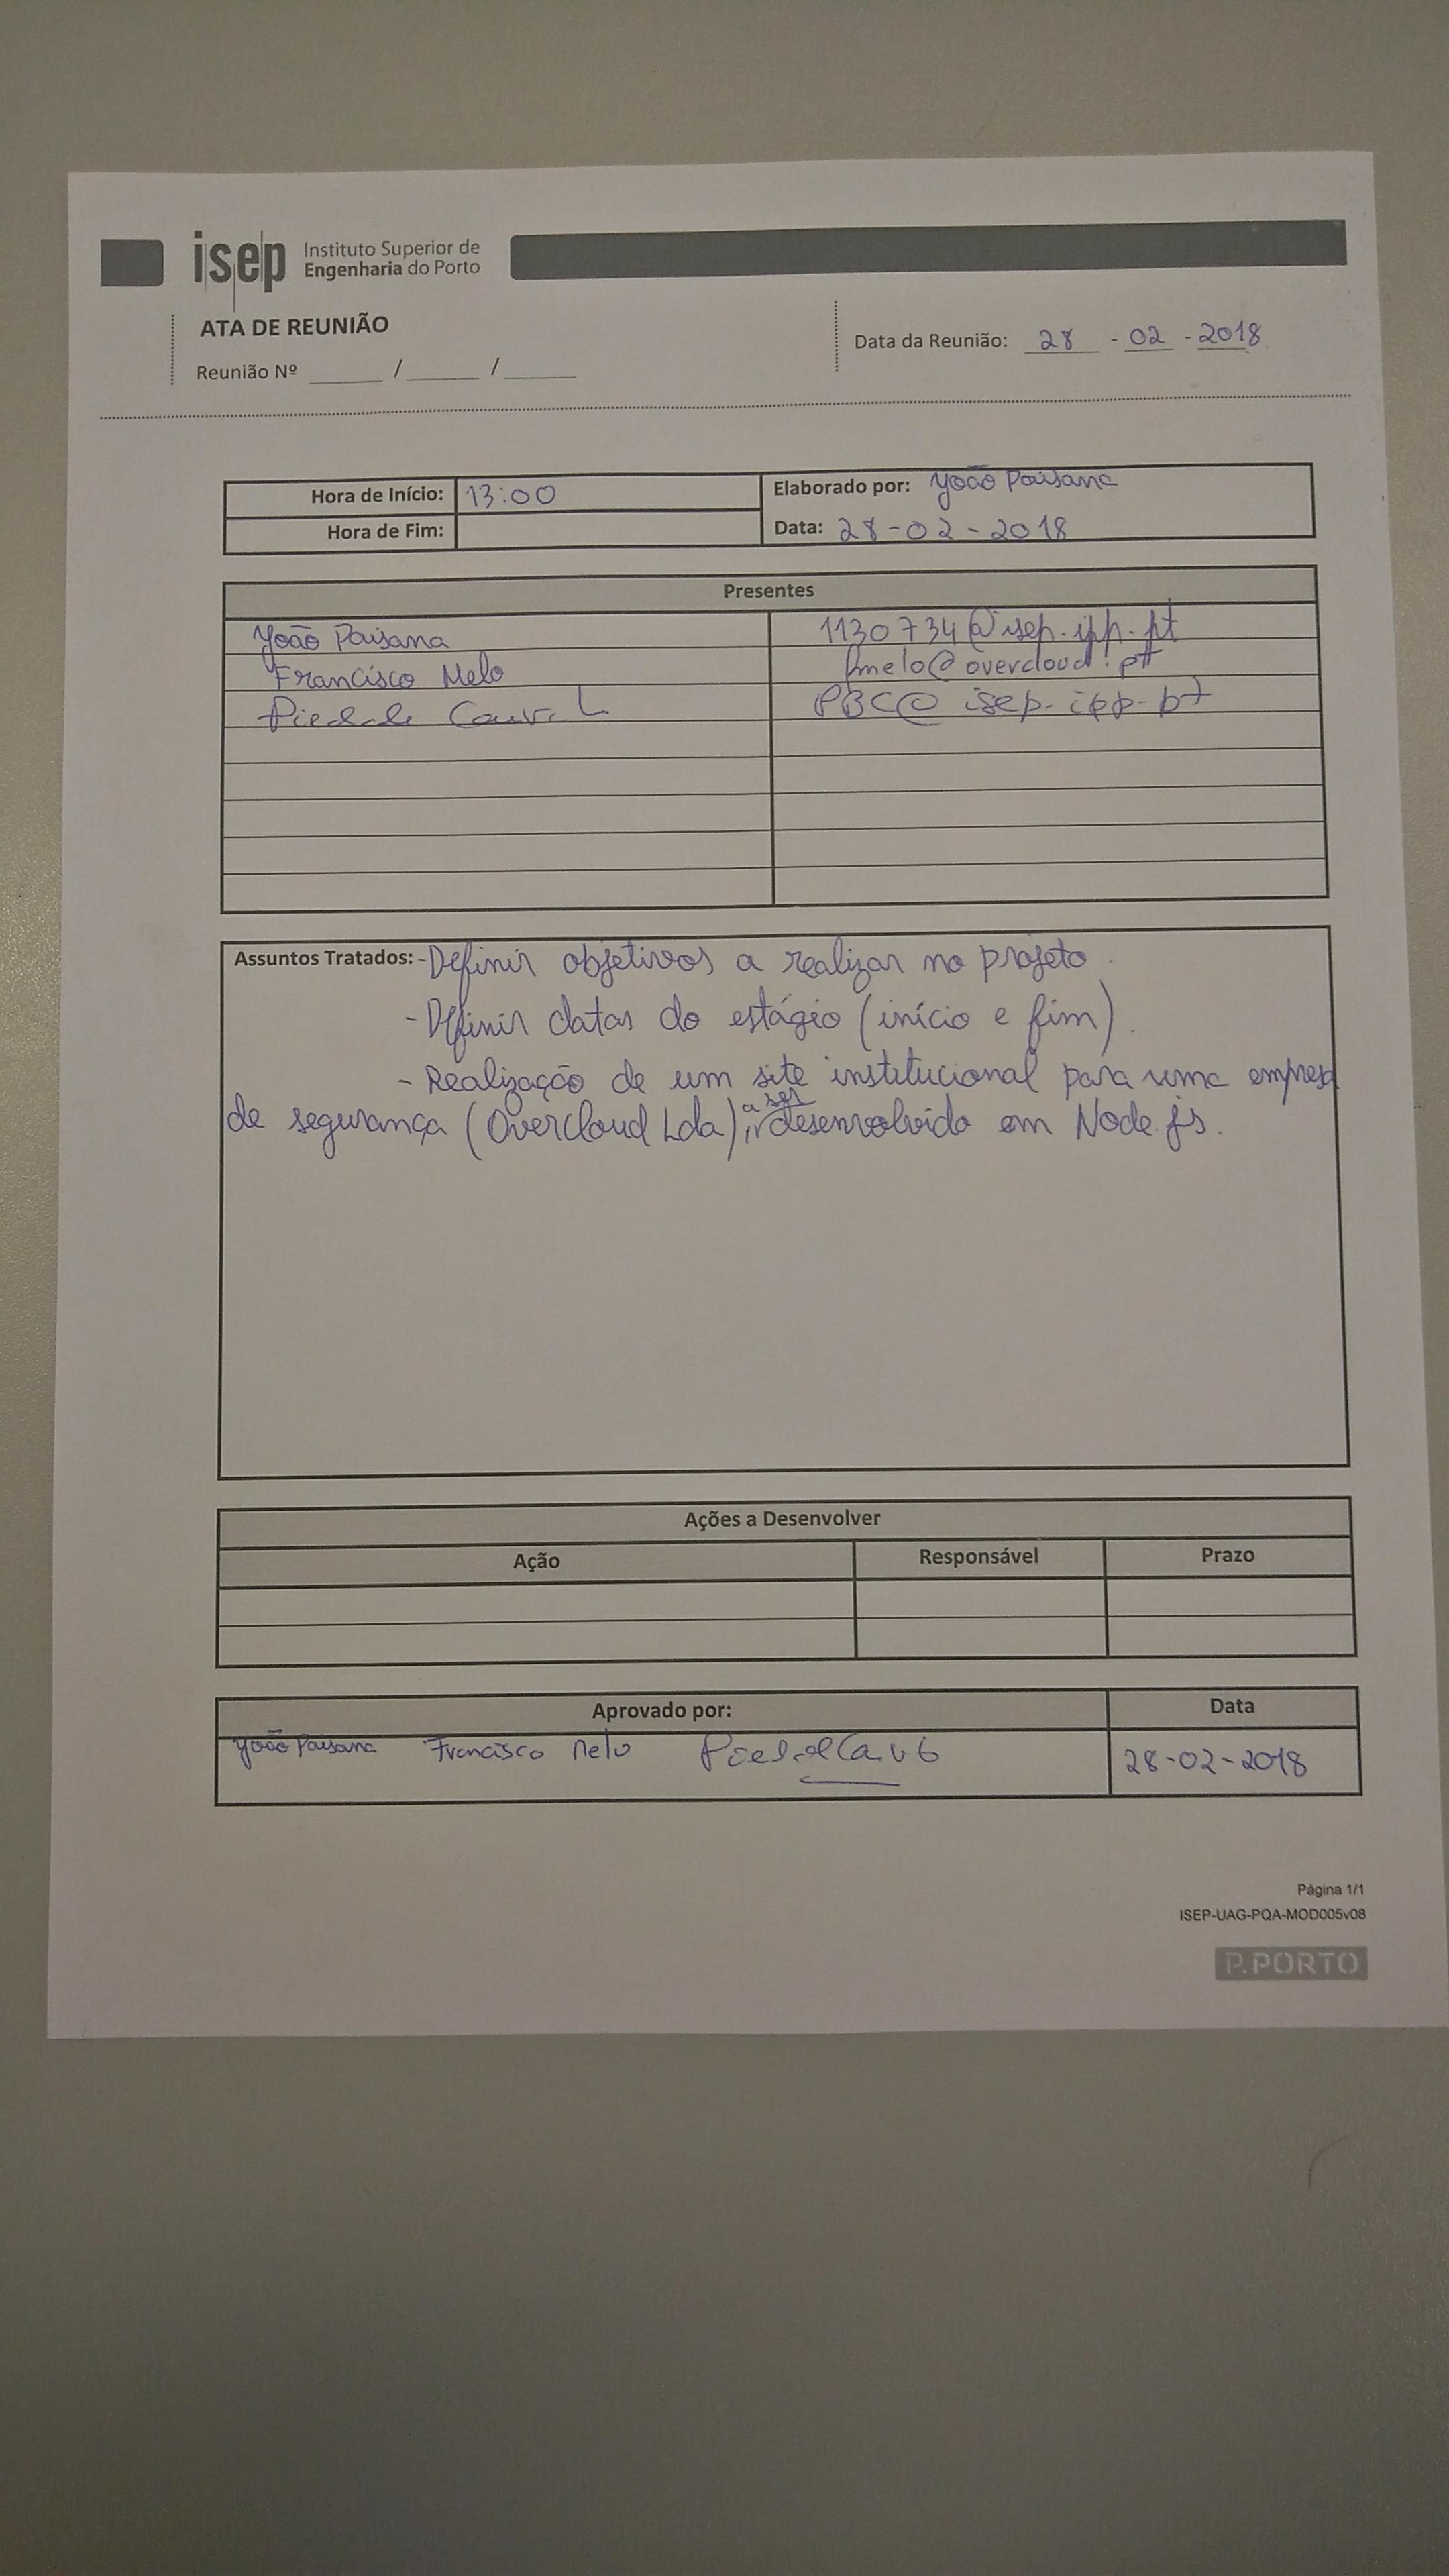 isep Instituto Superior de
Engenharia do Porto
ATA DE REUNIÃO
Reunião Nº ______ / ______ / ______
Data da Reunião: 28 - 02 - 2018
Hora de Início: 13:00
Elaborado por: João Paisana
Hora de Fim:
Data: 28-02-2018
Presentes
João Paisana 1130734@isep.ipp.pt
Francisco Melo fmelo@overcloud.pt
Piedade PBC@isep.ipp.pt
Assuntos Tratados: - Definir objetivos a realizar no projeto.
- Definir datas do estágio (início e fim).
- Realização de um site institucional para uma empresa
de segurança (Overcloud Lda), a ser desenvolvido em Node.js.
Ações a Desenvolver
Ação Responsável Prazo
Aprovado por: Data
João Paisana Francisco Melo 28-02-2018
Página 1/1
ISEP-UAG-PQA-MOD005v08
P.PORTO